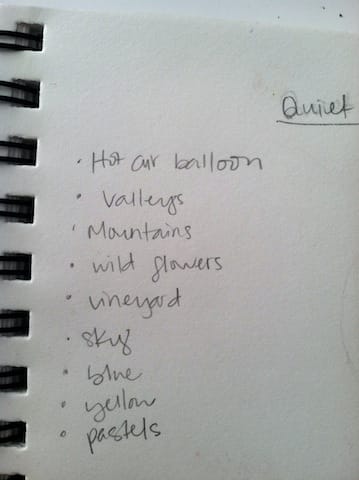 Quiet
· Hot air balloon
· Valleys
· Mountains
· wild flowers
· vineyard
· sky
· blue
· yellow
· pastels